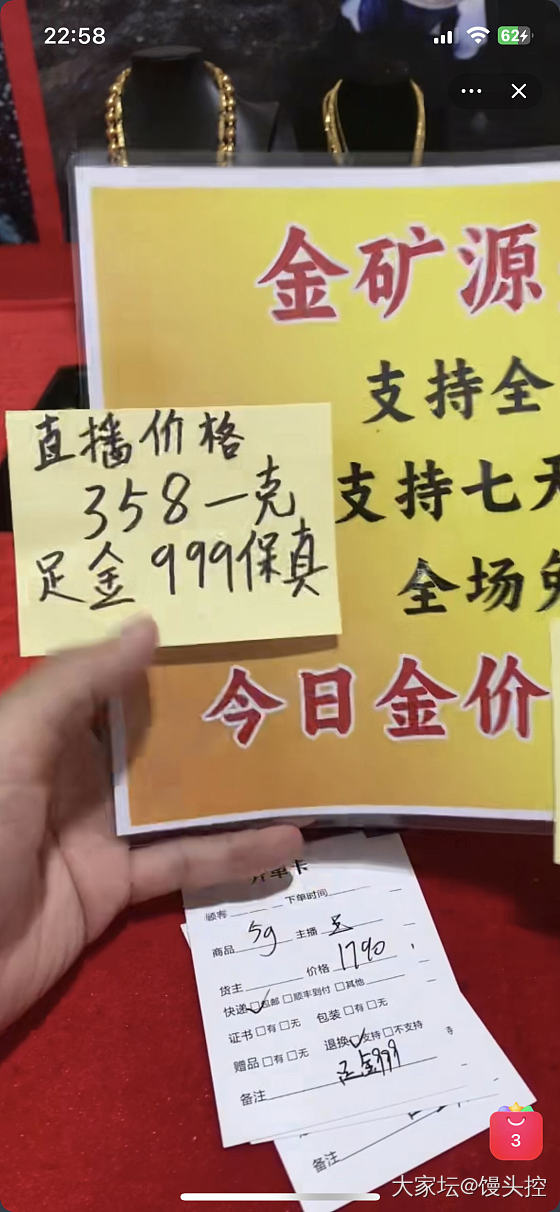 22:58
62
金矿源
支持全
支持七天
全场免
今日金价
直播价格
358一克
足金999保真
开单卡
顾客 下单时间
商品 5g 主播
货主 价格 1790
快递 ☑包邮 □顺丰到付 □其他
证书 □有 □无 包装 □有 □无
赠品 □有 □无 退换 ☑支持 □不支持
备注 足金999
备注
3
大家坛@馒头控